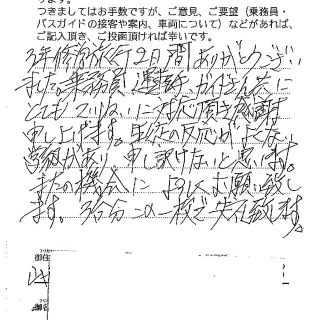 つきましてはお手数ですが、ご意見、ご要望（乗務員・
バスガイドの接客や案内、車両について）などがあれば、
ご記入頂き、ご投函頂ければ幸いです。
3年修学旅行2日間ありがとうござい
ました。乗務員（運転手、ガイドさん共に
とてもていねいに対応頂き感謝
申し上げます。生徒の反応がよくない
学級があり、申し訳けないと思います。
またの機会によろしくお願い致し
ます。3台分この一枚で失礼致します。